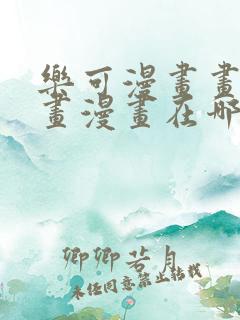 樂可漫畫畫
畫漫畫在哪
卿卿若月
未经同意禁止转载